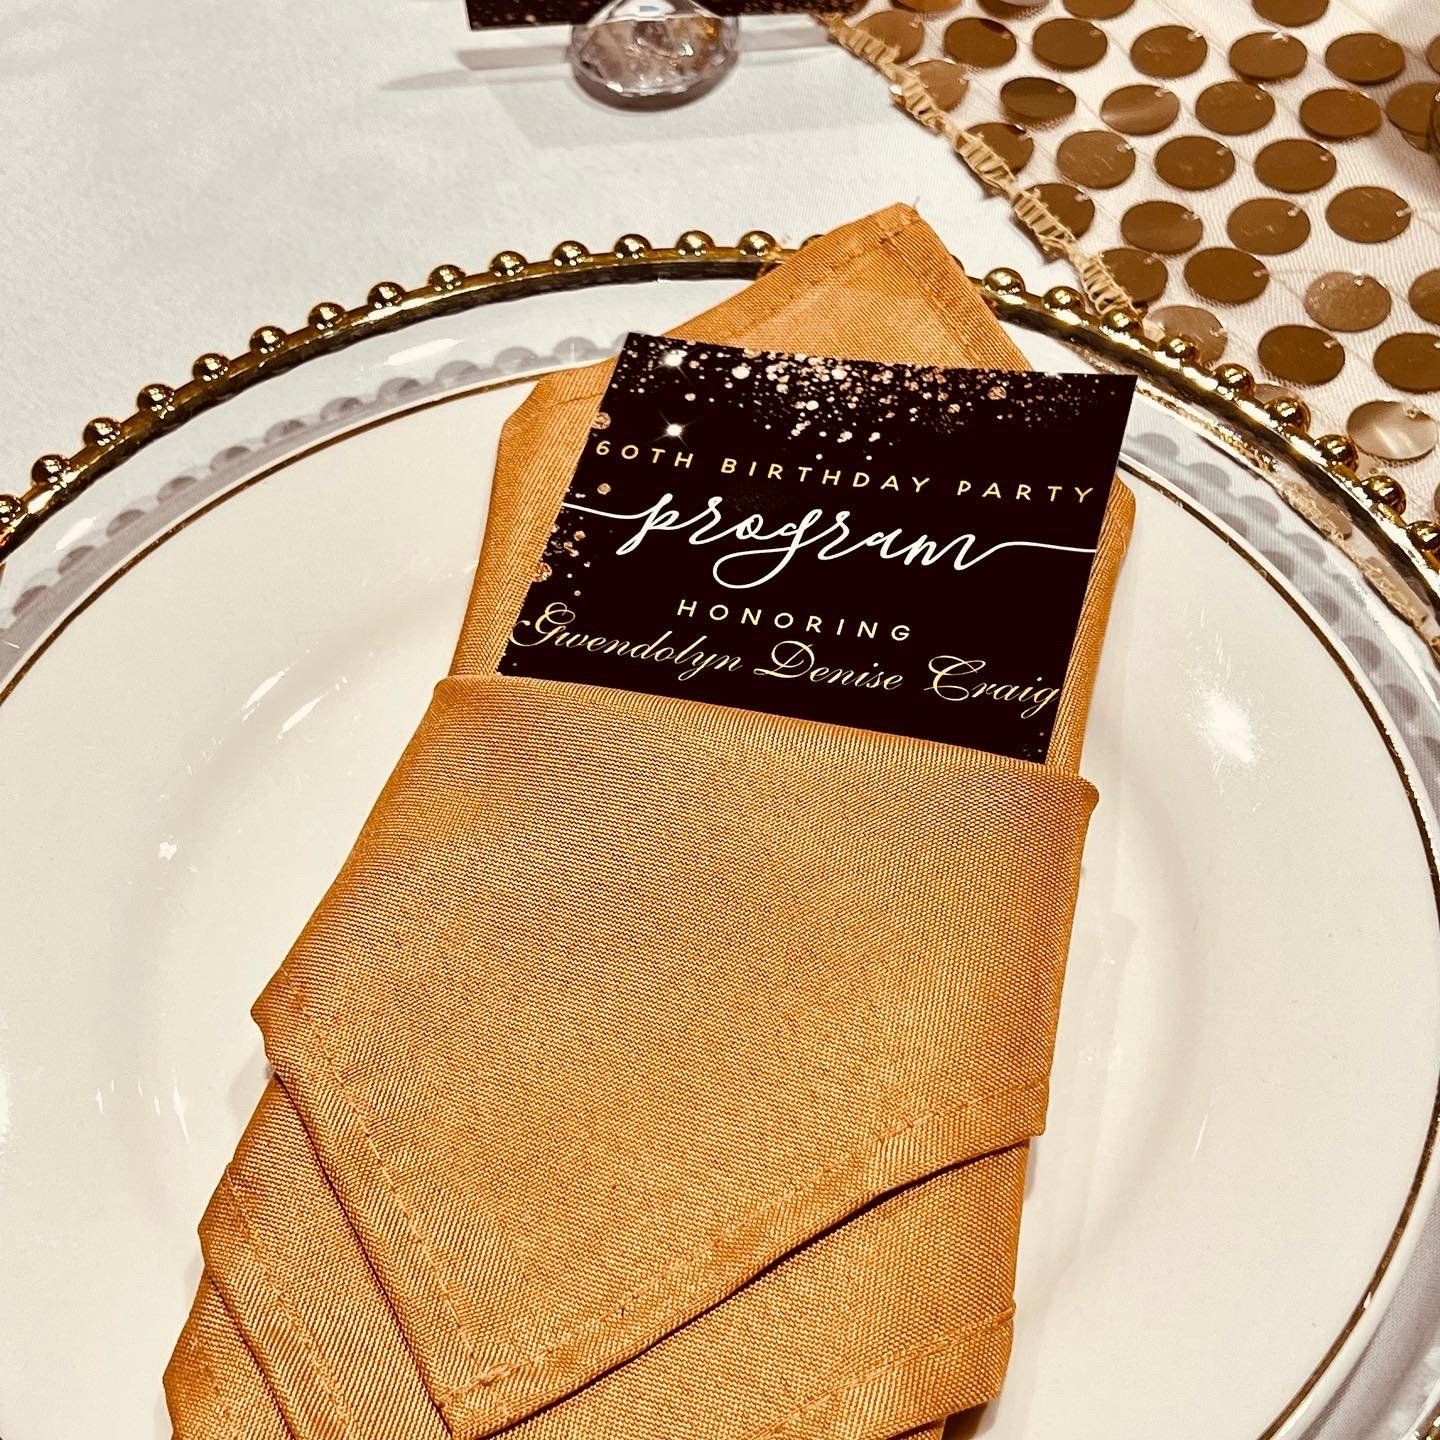 60TH BIRTHDAY PARTY
program
HONORING
Gwendolyn Denise Craig